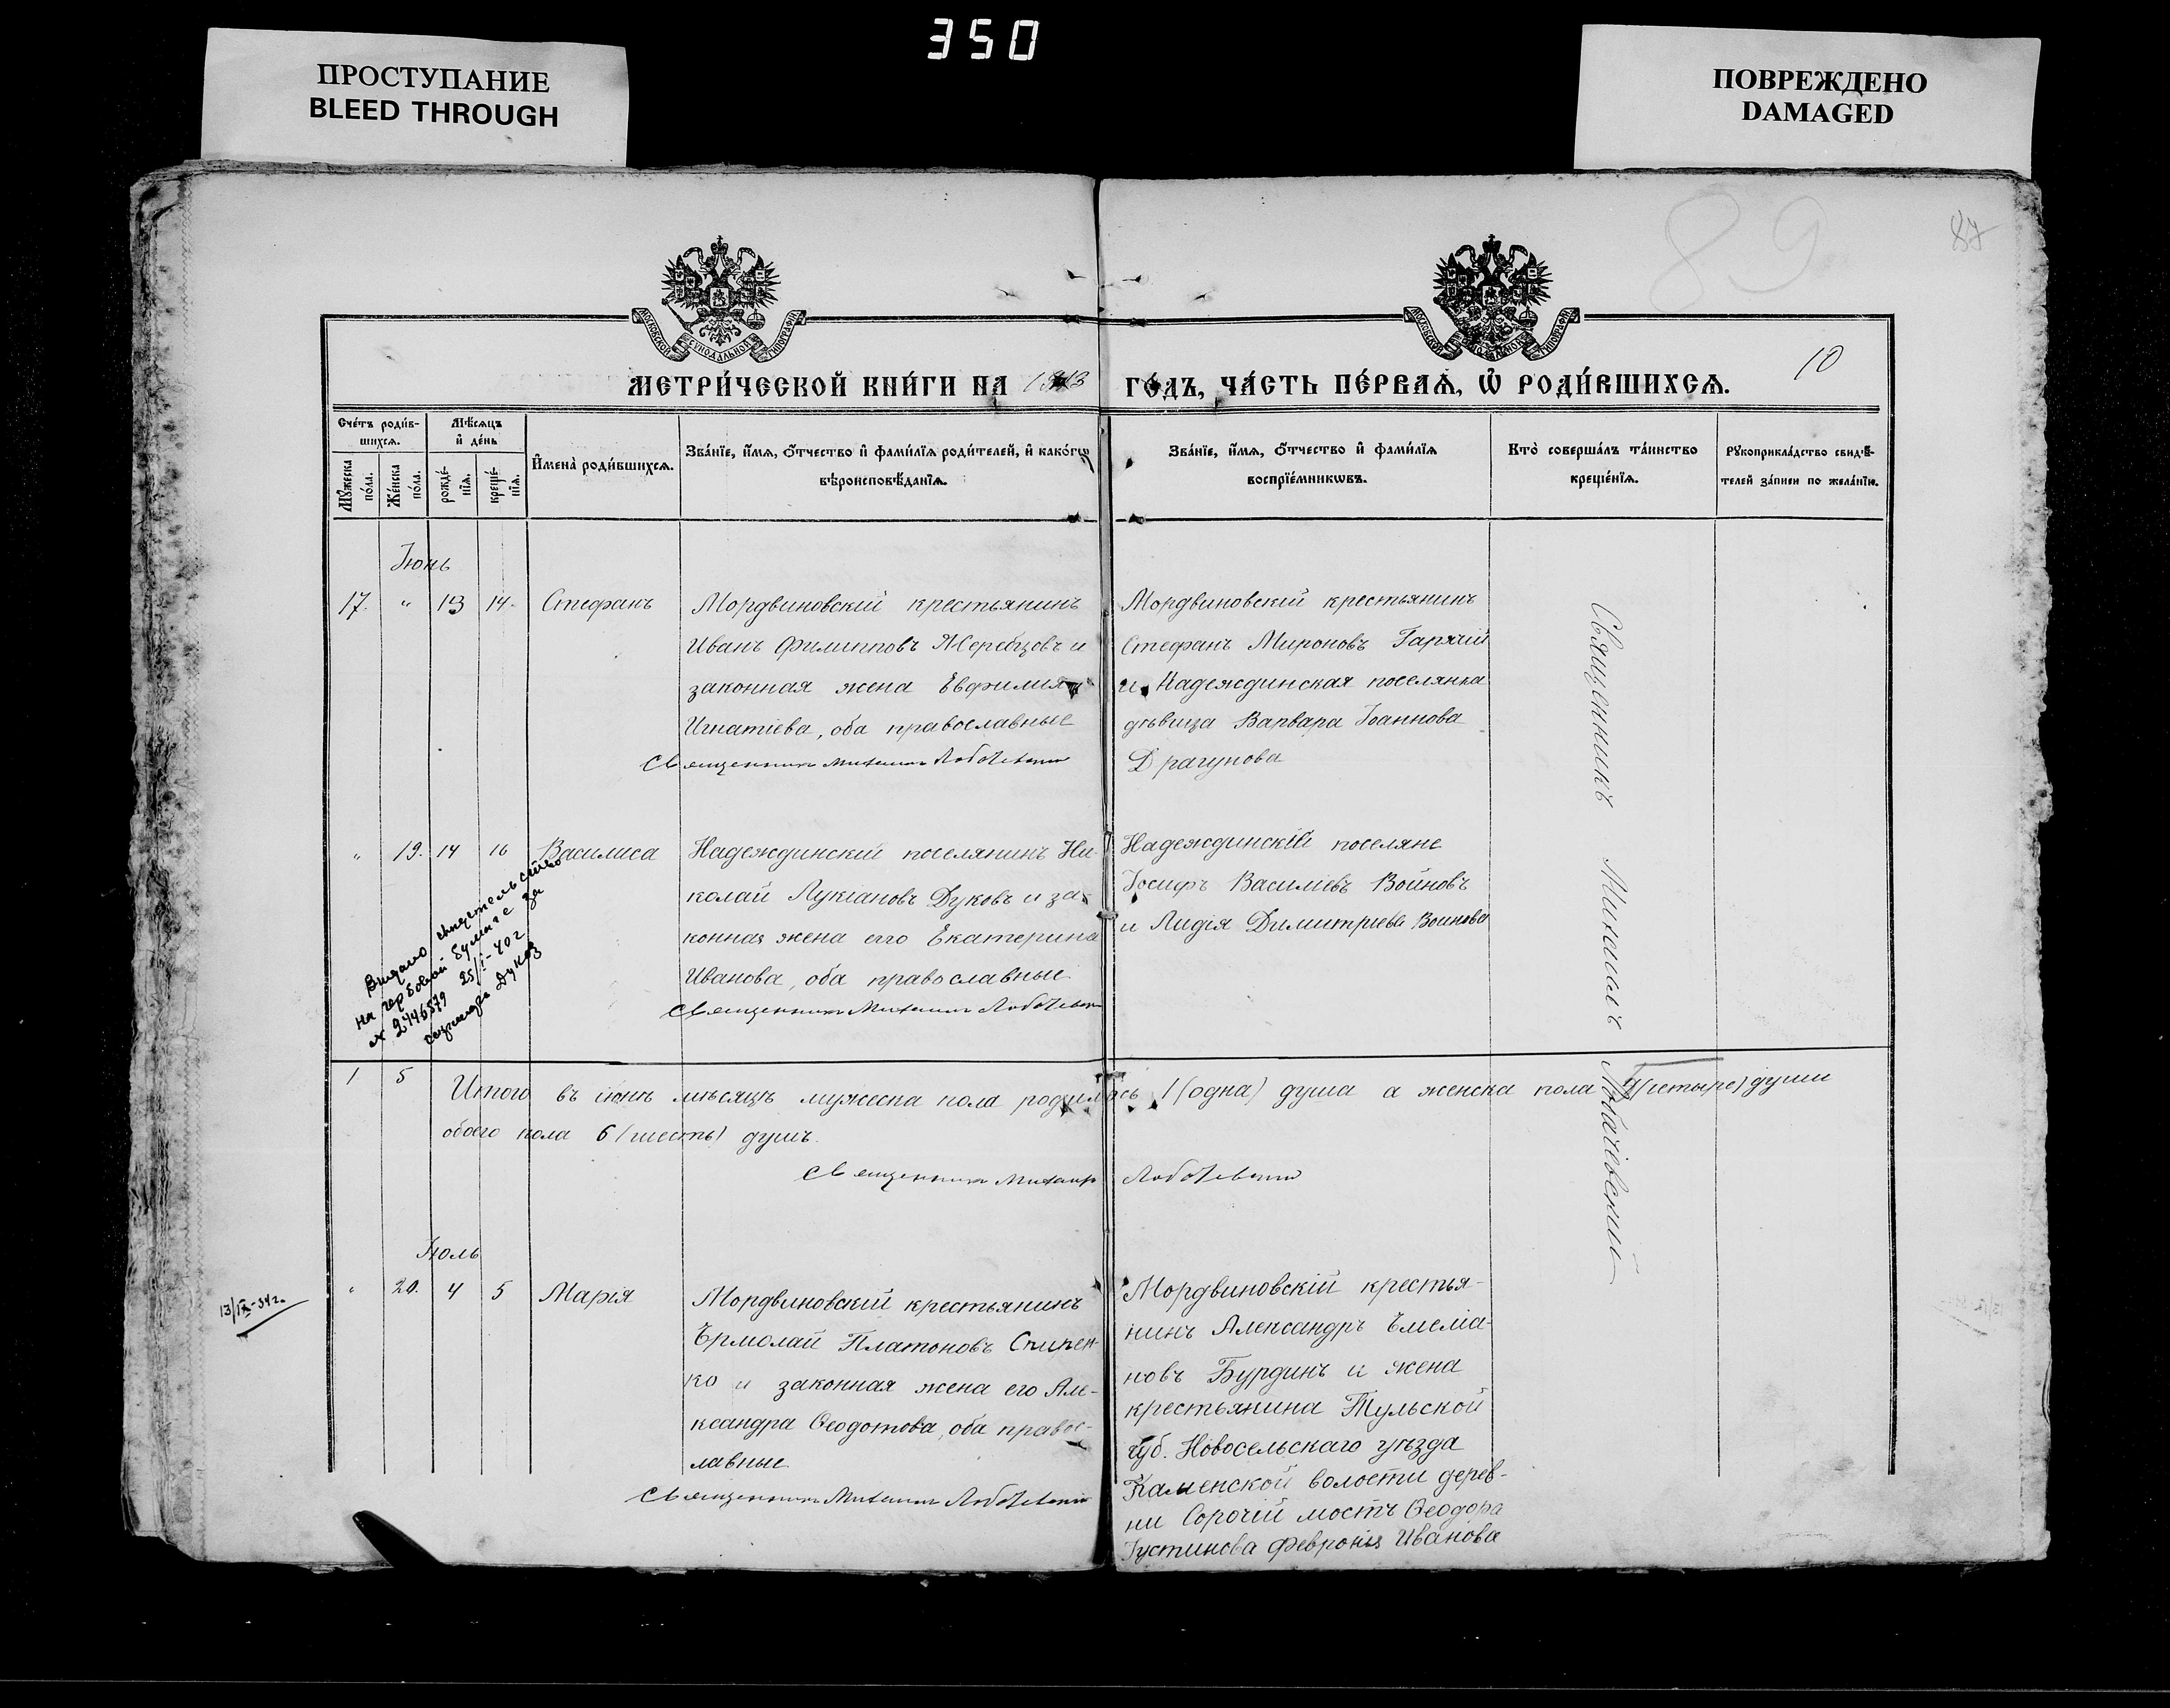 350
ПРОСТУПАНИЕ
BLEED THROUGH
ПОВРЕЖДЕНО
DAMAGED
89
87
МОСКОВСКОЙ СѴНОДАЛЬНОЙ ТИПОГРАФІИ
МОСКОВСКОЙ СѴНОДАЛЬНОЙ ТИПОГРАФІИ
10
МЕТРИ́ЧЕСКОЙ КНИ́ГИ НА 1913 ГО́ДЪ, ЧА́СТЬ ПЕ́РВАѦ, Ѡ҆ РОДИ́ВШИХСѦ.
Сче́тъ роди́вшихсѧ.
Мꙋ́жеска по́ла.
Же́нска по́ла.
Мѣ́сѧцъ и҆ де́нь
рожде́нїѧ.
креще́нїѧ.
И҆мена̀ роди́вшихсѧ.
Зва́нїе, и҆́мѧ, ѻ҆́тчество и҆ фами́лїѧ роди́телей, и҆ како́гѡ
вѣроисповѣ́данїѧ.
Зва́нїе, и҆́мѧ, ѻ҆́тчество и҆ фами́лїѧ
воспрїе́мникѡвъ.
Кто̀ соверша́лъ та́инство
креще́нїѧ.
Рꙋкоприкла́дство свидѣ́-
телей за́писи по жела́нїю.
Іюнь
17. " 13 14. Стефанъ
Мордвиновскій крестьянинъ
Иванъ Филипповъ Жеребцовъ и
законная жена Евфимія
Игнатіева, оба православные
Священникъ Михаилъ Лобачевскій
Мордвиновскій крестьянинъ
Стефанъ Мироновъ Гарячій
и Надеждинская поселянка
дѣвица Варвара Іоаннова
Драгунова
" 19. 14 16 Василиса
Надеждинскій поселянинъ Ни-
колай Лукіановъ Дуковъ и за-
конная жена его Екатерина
Иванова, оба православные
Священникъ Михаилъ Лобачевскій
Надеждинскій поселяне
Іосифъ Василіевъ Войновъ
и Лидія Димитріева Воинова
Выдано свидетельство
на гербовой бумаге за
№ 2446579 25/I-40 г
Дуков
1 5 Итого въ іюнѣ мѣсяцѣ мужеска пола родилась 1 (одна) душа а женска пола (четыре) души
обоего пола 6 (шесть) душъ.
Священникъ Михаилъ Лобачевскій
Іюль
13/IX-34г.
" 20. 4 5 Марія
Мордвиновскій крестьянинъ
Ермолай Платоновъ Спичен-
ко и законная жена его Але-
ксандра Ѳеодотова, оба правос-
лавные
Священникъ Михаилъ Лобачевскій
Мордвиновскій крестья-
нинъ Александръ Емелиа-
новъ Бурдинъ и жена
крестьянина Тульской
губ. Новосельскаго уѣзда
Каменской волости дерев-
ни Сорочій мостъ Ѳеодора
Іустинова Февронія Иванова
Священникъ Михаилъ Лобачевскій